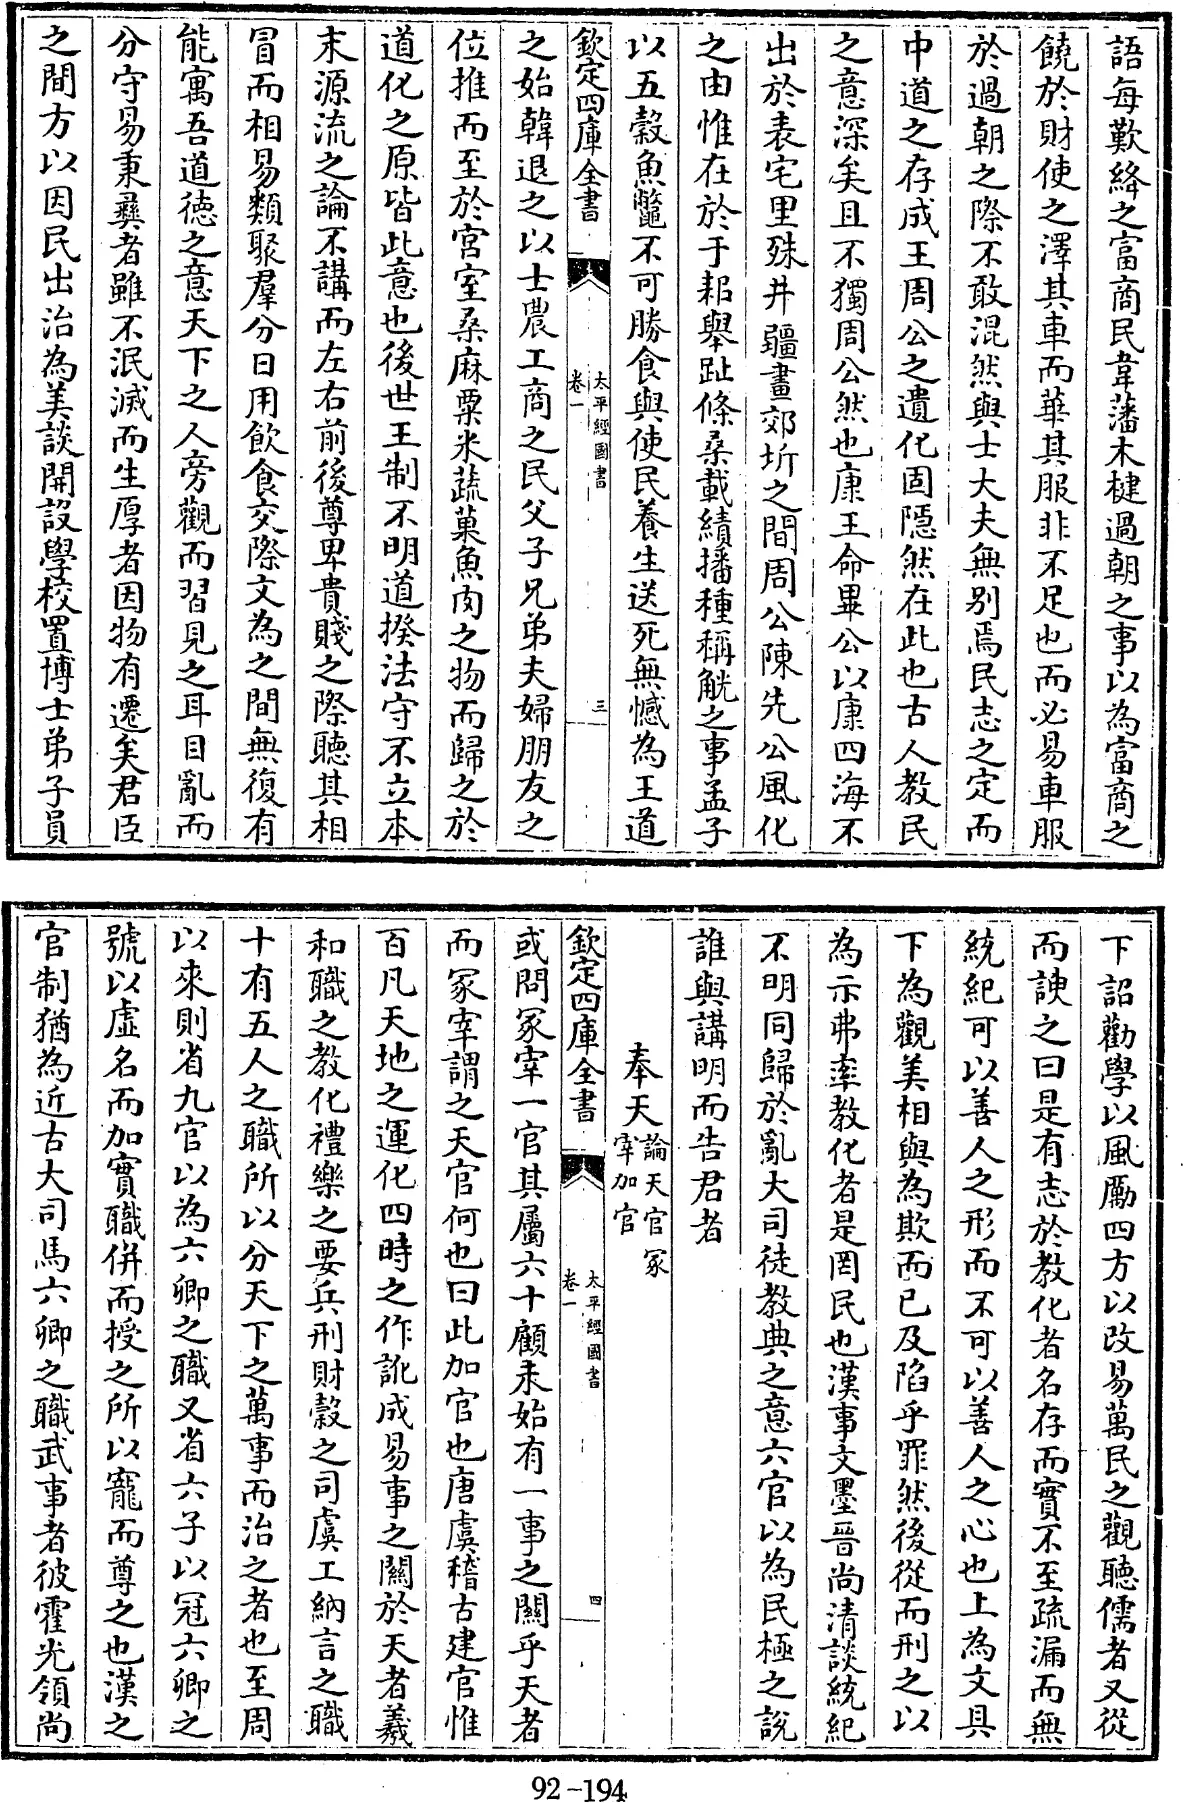 語每歎絳之富商民韋藩木楗過朝之事以為富商之
饒於財使之澤其車而華其服非不足也而必易車服
於過朝之際不敢混然與士大夫無別焉民志之定而
中道之存成王周公之遺化固隱然在此也古人教民
之意深矣且不獨周公然也康王命畢公以康四海不
出於表宅里殊井疆畫郊圻之間周公陳先公風化
之由惟在於于耜舉趾條桑載績播種稱觥之事孟子
以五穀魚鼈不可勝食與使民養生送死無憾為王道
欽定四庫全書
太平經國書
卷一
三
之始韓退之以士農工商之民父子兄弟夫婦朋友之
位推而至於宮室桑麻粟米蔬菓魚肉之物而歸之於
道化之原皆此意也後世王制不明道揆法守不立本
末源流之論不講而左右前後尊卑貴賤之際聽其相
冒而相易類聚羣分日用飲食交際文為之間無復有
能寓吾道德之意天下之人旁觀而習見之耳目亂而
分守易秉彞者雖不泯滅而生厚者因物有遷矣君臣
之間方以因民出治為美談開設學校置博士弟子員
下詔勸學以風厲四方以改易萬民之觀聽儒者又從
而諛之曰是有志於教化者名存而實不至疏漏而無
統紀可以善人之形而不可以善人之心也上為文具
下為觀美相與為欺而已及陷乎罪然後從而刑之以
為示弗率教化者是罔民也漢事文墨晉尚清談統紀
不明同歸於亂大司徒教典之意六官以為民極之說
誰與講明而告君者
奉天論天官冢
宰加官
欽定四庫全書
太平經國書
卷一
四
或問冢宰一官其屬六十顧未始有一事之關乎天者
而冢宰謂之天官何也曰此加官也唐虞稽古建官惟
百凡天地之運化四時之作訛成易事之關於天者羲
和職之教化禮樂之要兵刑財穀之司虞工納言之職
十有五人之職所以分天下之萬事而治之者也至周
以來則省九官以為六卿之職又省六子以冠六卿之
號以虛名而加實職併而授之所以寵而尊之也漢之
官制猶為近古大司馬六卿之職武事者彼霍光領尚
92-194